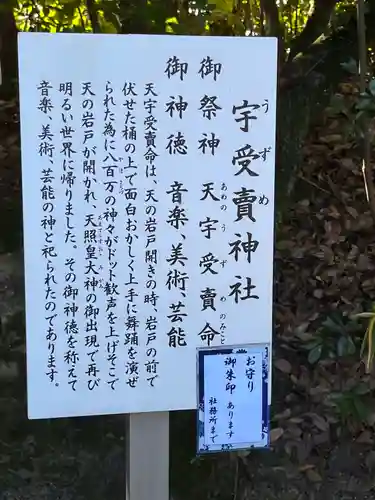 宇受賣神社
うずめ
御祭神　天宇受賣命
あめのうずめのみこと
御神徳　音楽、美術、芸能
天宇受賣命は、天の岩戸開きの時、岩戸の前で
伏せた桶の上で面白おかしく上手に舞踊を演ぜ
られた為に八百万の神々がドット歓声を上げそこで
やほよろず
天の岩戸が開かれ、天照皇大神の御出現で再び
あまてらすおおみかみ
明るい世界に帰りました。その御神徳を称えて
音楽、美術、芸能の神と祀られたのであります。
お守り
御朱印　あります
社務所まで